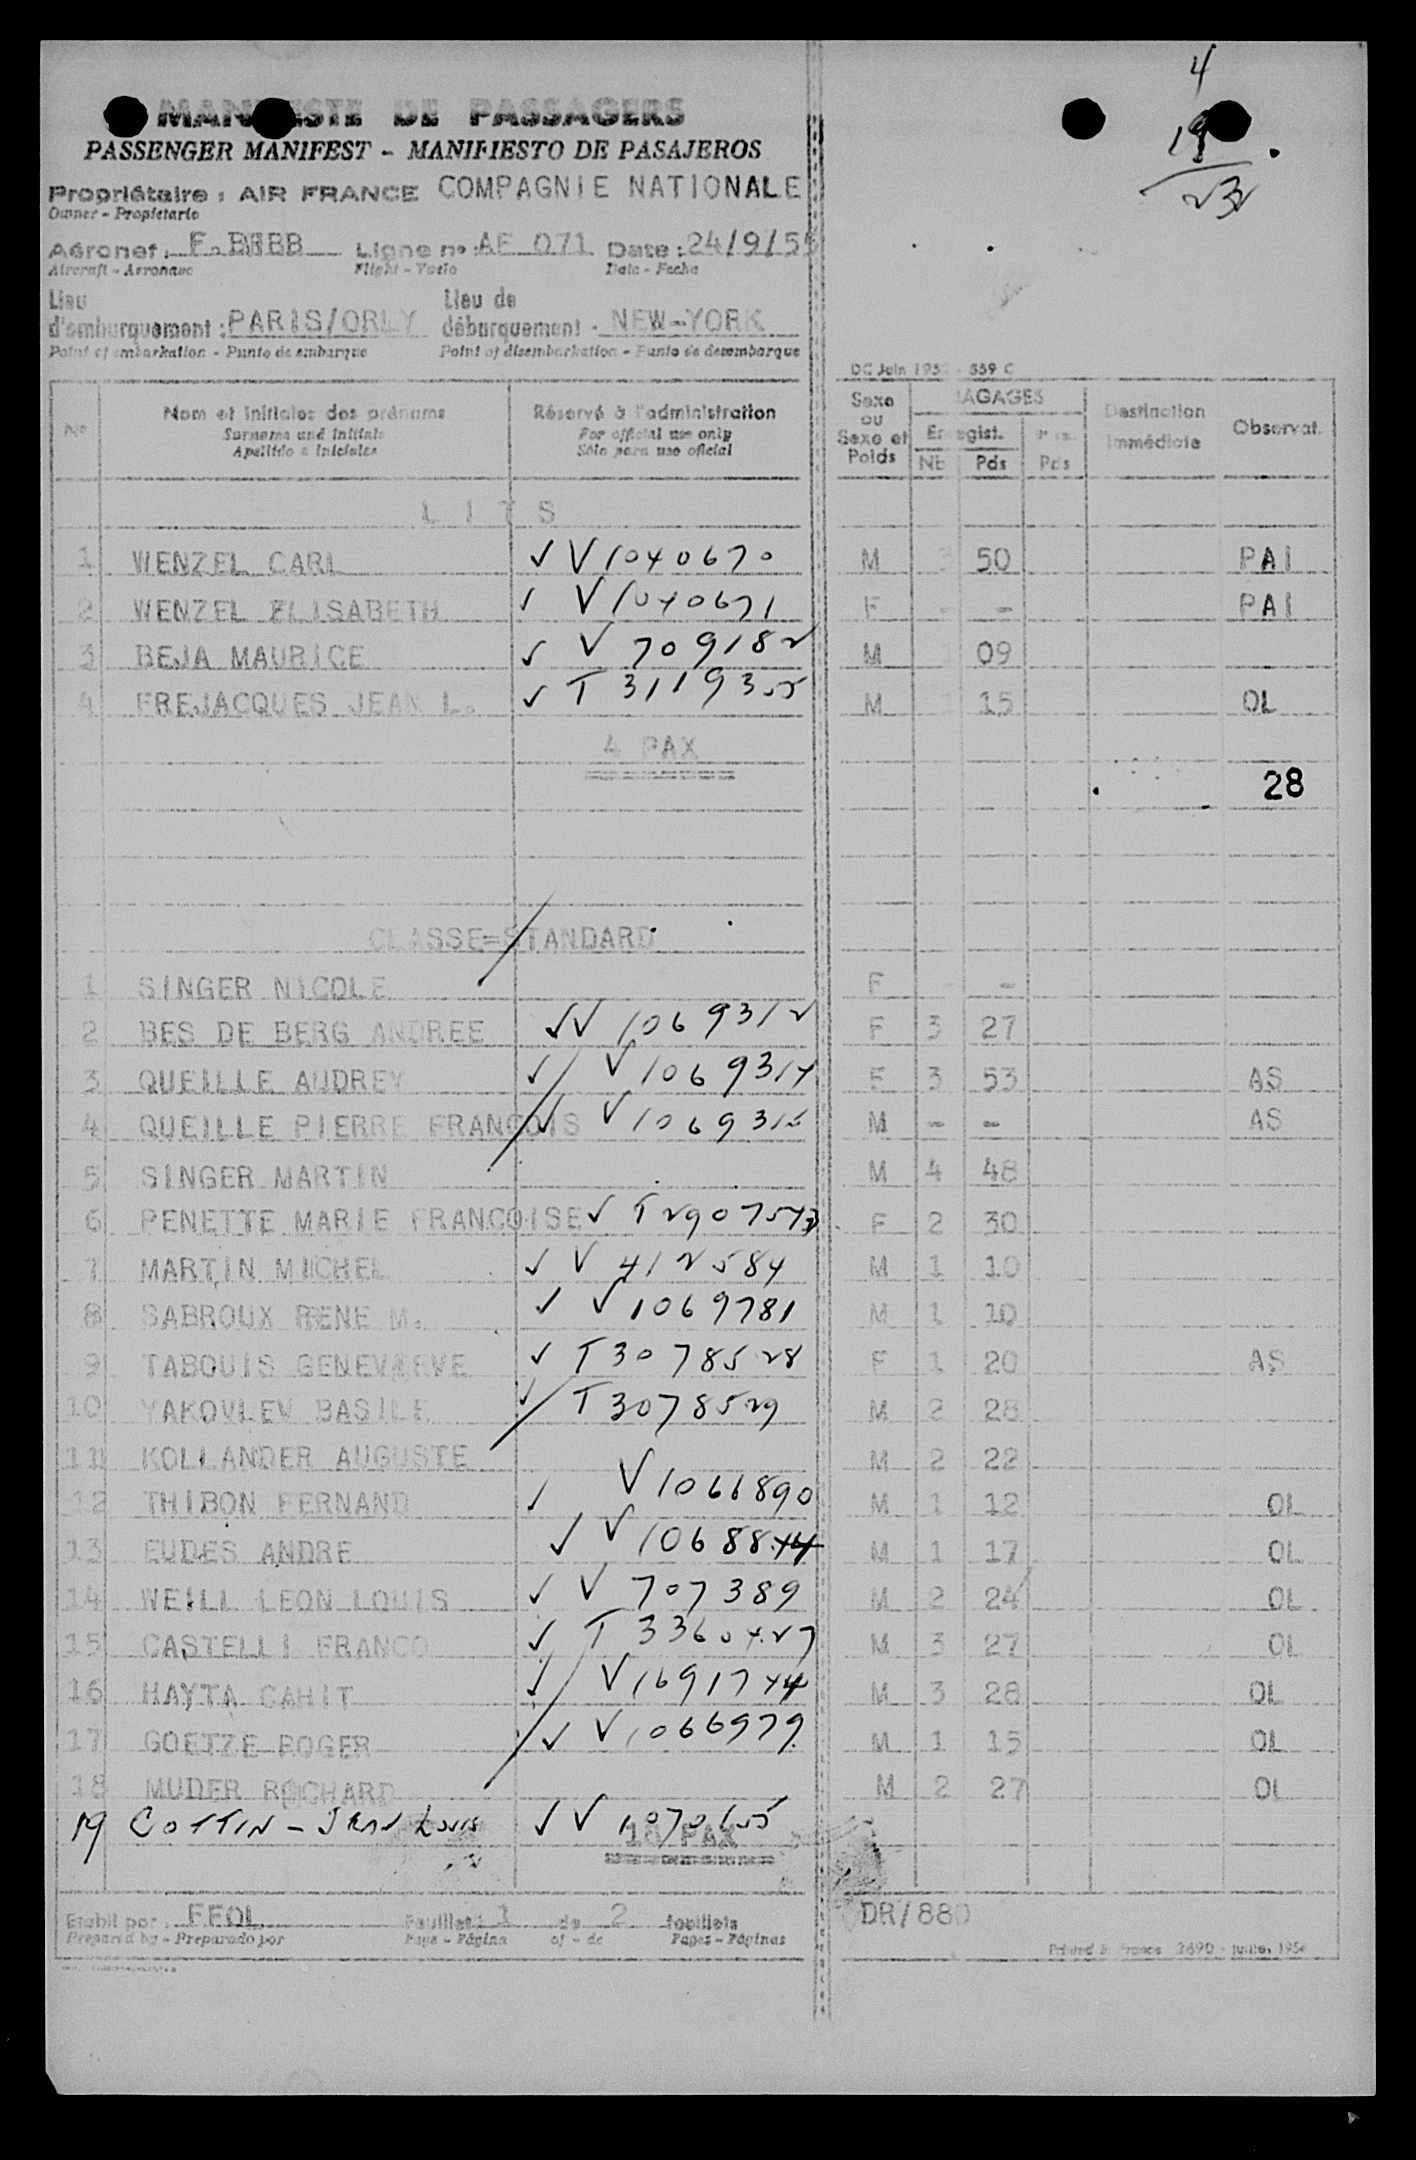 4
19
23
MANIFESTE DE PASSAGERS
PASSENGER MANIFEST - MANIFIESTO DE PASAJEROS
Propriétaire : AIR FRANCE COMPAGNIE NATIONALE
Owner - Propietario
Aéronef : F.BHBB Ligne n° : AF 071 Date : 24/9/55
Aircraft - Aeronave Flight - Vuelo Date - Fecha
Lieu d'embarquement : PARIS/ORLY Lieu de débarquement - NEW-YORK
Point of embarkation - Punto de embarque Point of disembarkation - Punto de desembarque
DC Juin 195 - 559 C
No Nom et initiales des prénoms Réservé à l'administration Sexe ou Sexe et Poids BAGAGES Destination immédiate Observat.
Surname and initials For official use only Enregist. Pds
Apellido e iniciales Sólo para uso oficial Nb Pds
LITS
1 WENZEL CARL V1040670 M 3 50 PAI
2 WENZEL ELISABETH V1040671 F - - PAI
3 BEJA MAURICE V 709182 M 1 09
4 FREJACQUES JEAN L. T 3119352 M 1 15 OL
4 PAX
28
CLASSE=STANDARD
1 SINGER NICOLE F - -
2 BES DE BERG ANDREE V 1069312 F 3 27
3 QUEILLE AUDREY V 1069314 F 3 53 AS
4 QUEILLE PIERRE FRANCOIS V 1069315 M - - AS
5 SINGER MARTIN M 4 48
6 PENETTE MARIE FRANCOISE T 2907543 F 2 30
7 MARTIN MICHEL V 412584 M 1 10
8 SABROUX RENE M. V 1069781 M 1 10
9 TABOUIS GENEVIEVE T 3078528 F 1 20 AS
10 YAKOVLEV BASILE T 3078529 M 2 28
11 KOLLANDER AUGUSTE M 2 22
12 THIBON FERNAND V 1066890 M 1 12 OL
13 EUDES ANDRE V 1068844 M 1 17 OL
14 WEILL LEON LOUIS V 707389 M 2 24 OL
15 CASTELLI FRANCO T 3360427 M 3 27 OL
16 HAYTA CAHIT V 1691744 M 3 28 OL
17 GOETZE ROGER V 1066979 M 1 15 OL
18 MUDER RICHARD M 2 27 OL
19 COTTIN - JEAN LOUIS V 1070655
18 PAX
Etabli par : FFOL Feuillet : 1 de 2 feuillets DR/880
Prepared by - Preparado por Page - Página of - de Pages - Páginas
Printed in France 2690 - 1954